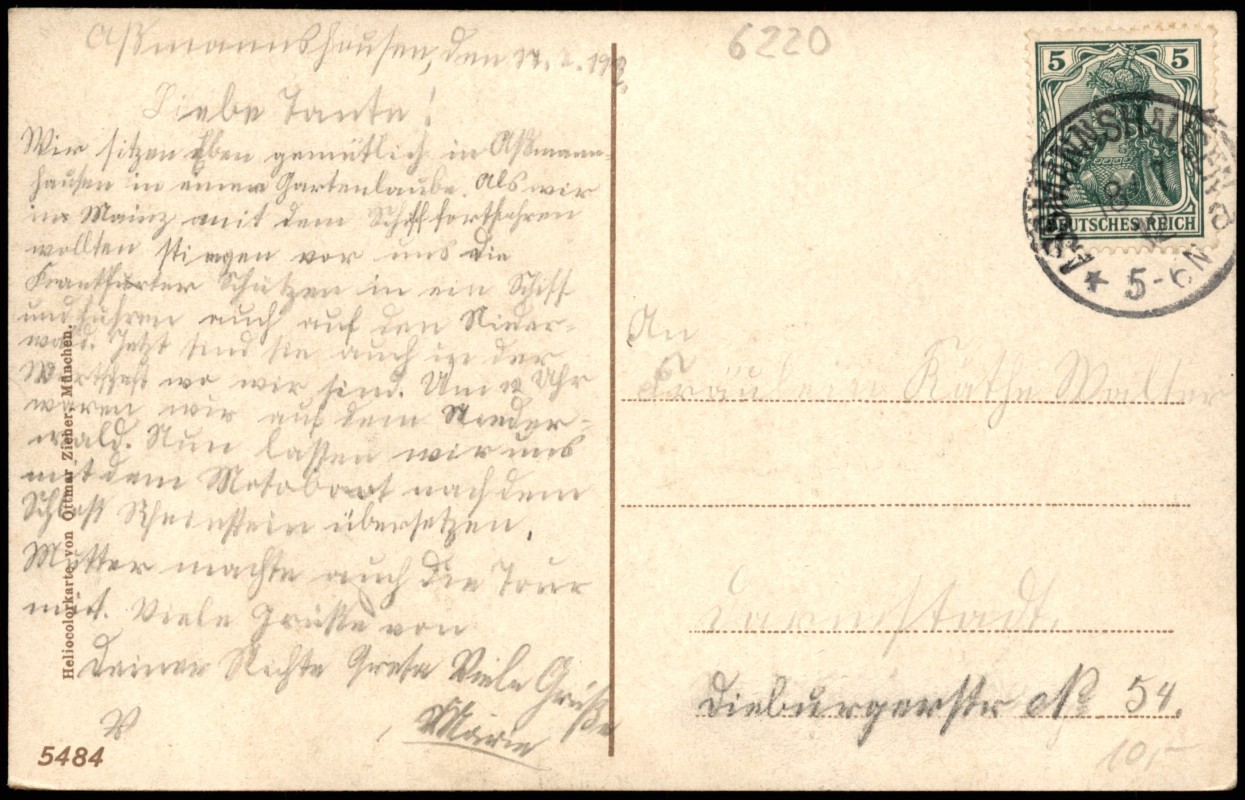 Aßmannshausen, den
Liebe Tante!
Wir sitzen Eben gemütlich in Aßmann-
hausen in einer Gartenlaube. Als wir
in Mainz mit dem Schiff fortfahren
wollten stiegen vor uns die
Frankfurter Schützen in ein Schiff
und fuhren auch auf den Nieder-
wald. Jetzt sind sie auch in der
Wirtschaft wo wir sind. Um 12 Uhr
waren wir auf dem Nieder-
wald. Nun lassen wir uns
mit dem Motoboot nach dem
Schloß Rheinstein übersetzen.
Mutter machte auch die Tour
mit. Viele Grüße von
Deiner Nichte Greta Viele Grüße
Marie
5484
Heliocolorkarte von Ottmar Zieher, München.
6220
5 5
DEUTSCHES REICH
ASSMANNSHAUSEN
* 5-6 N
An
Fräulein Käthe Walter
Darmstadt.
Dieburgerstr No 54.
10,-